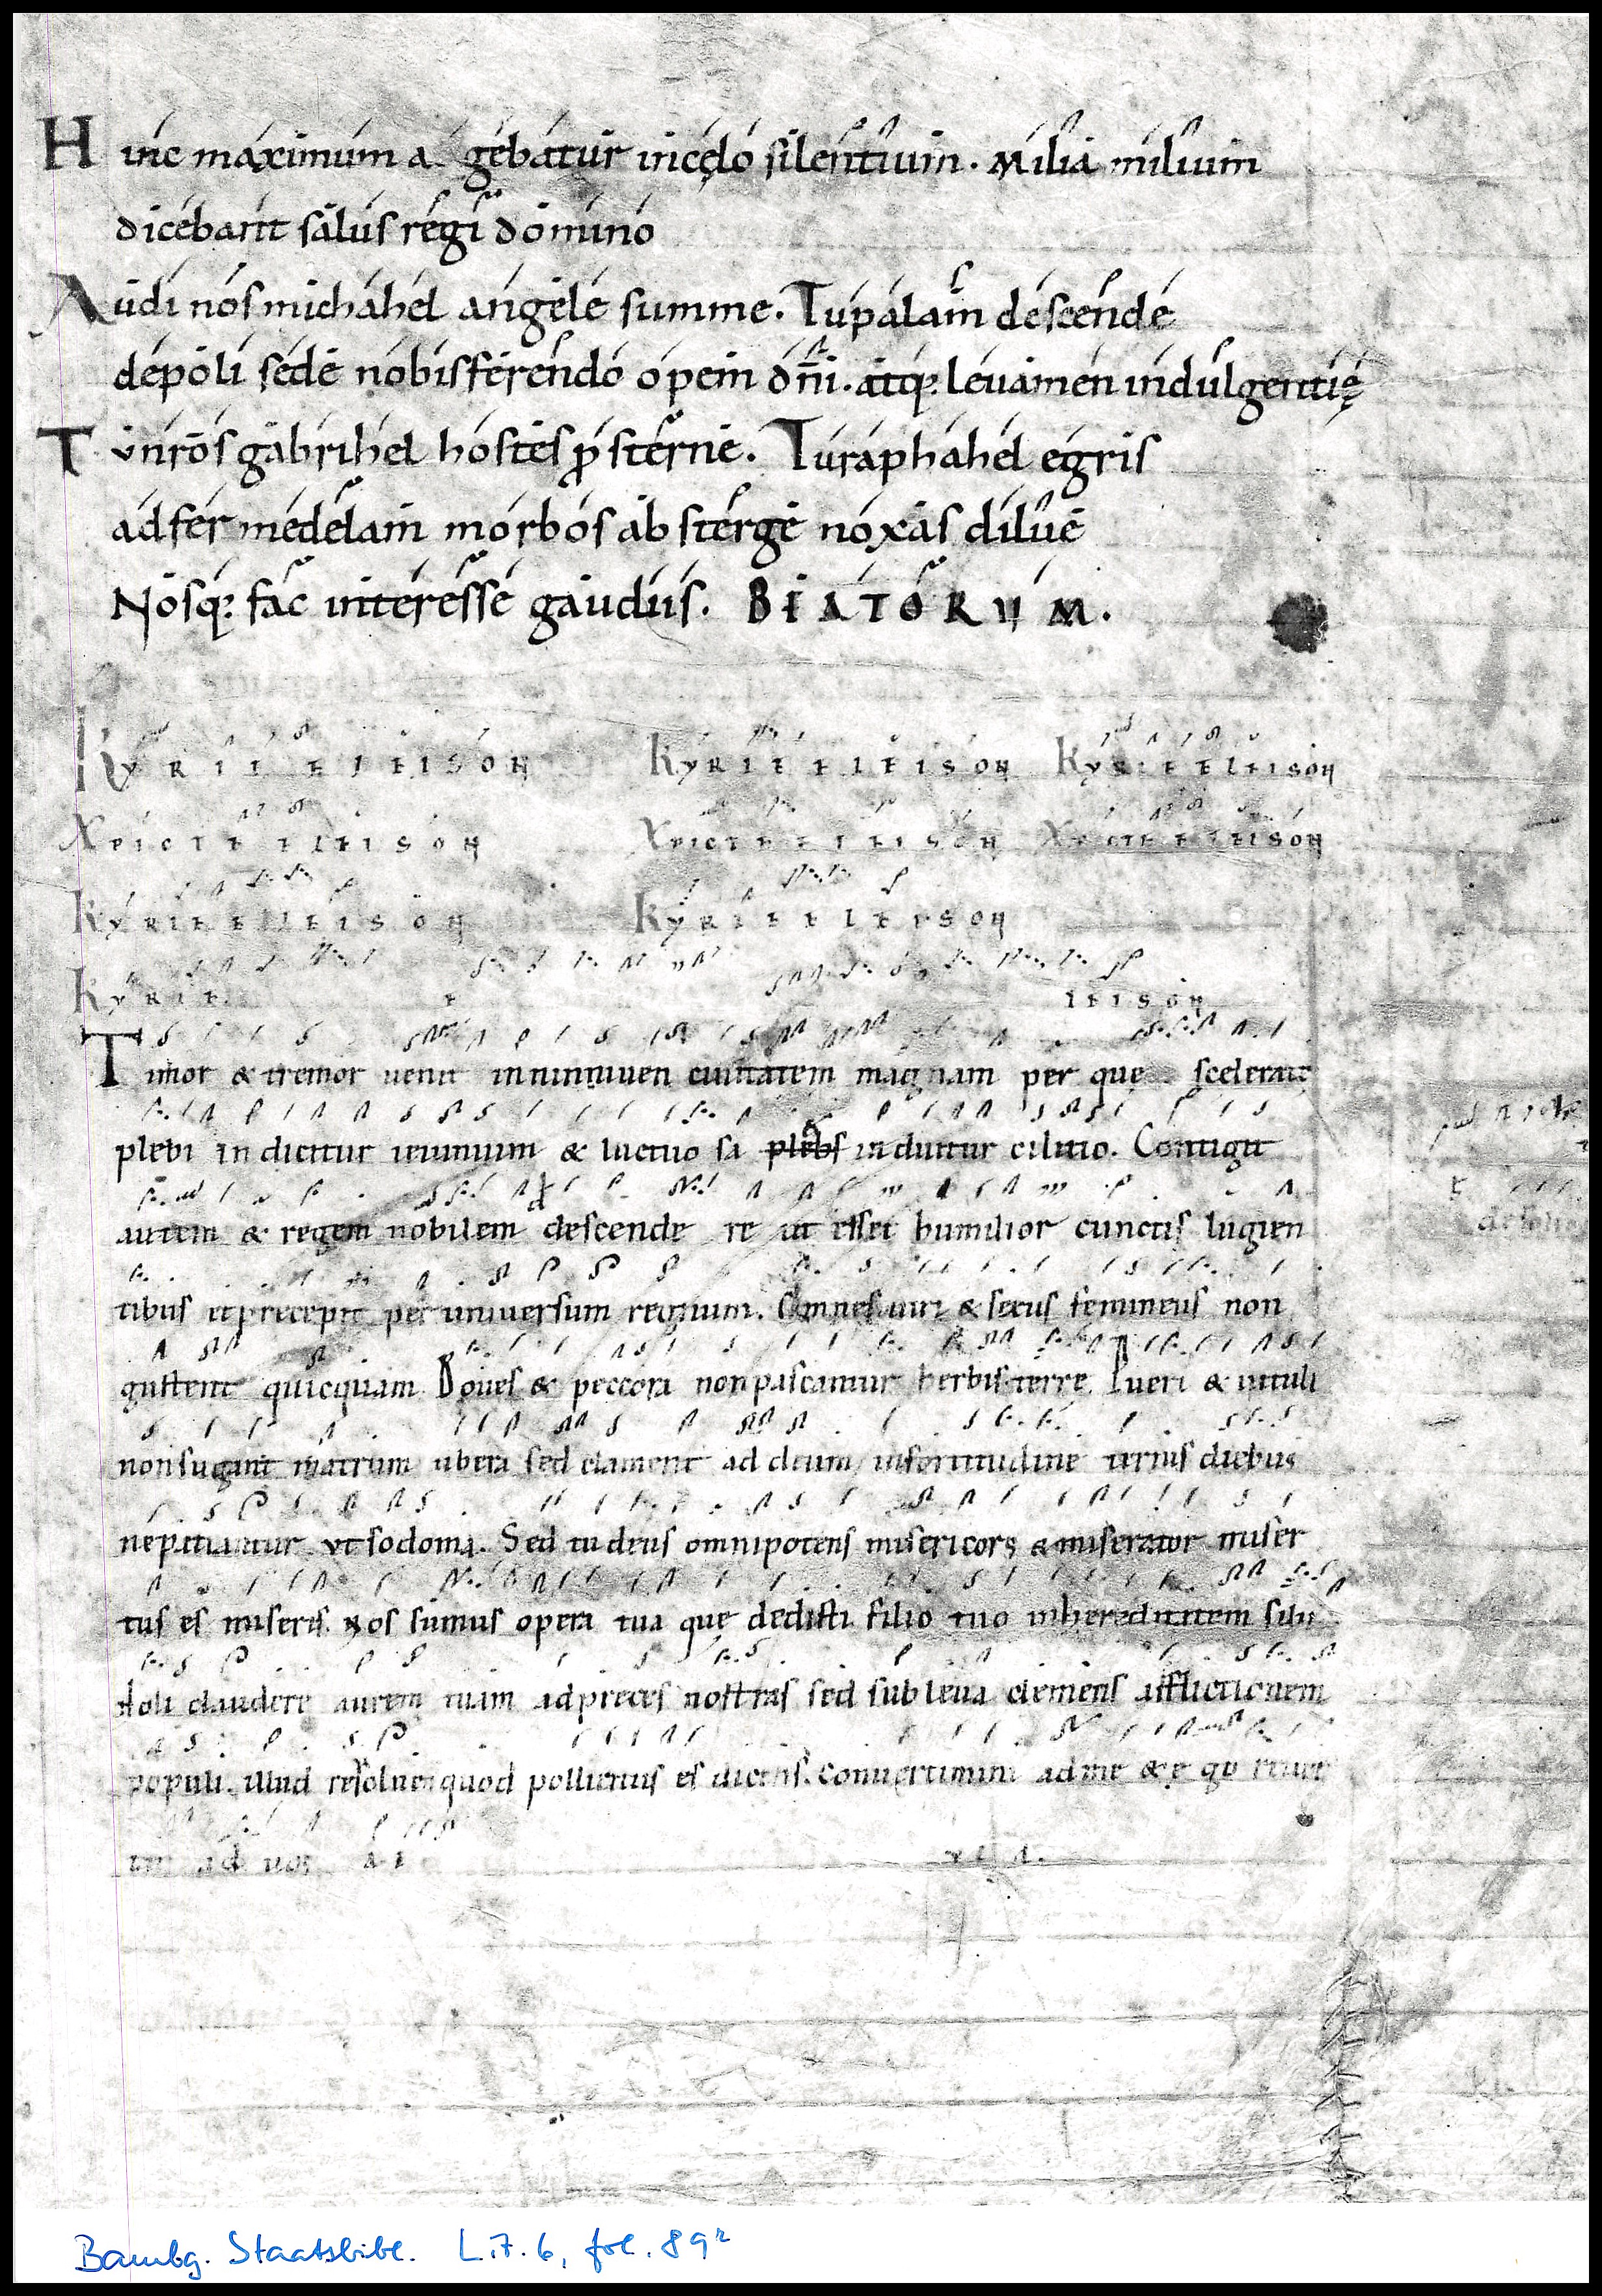 Hinc maximum agebatur in cęlo silentium. Milia milium
dicebant salus regi domino
Audi nos michahel angele summe. Tu palam descende
de poli sede nobis ferendo opem dn̄i. atq; levamen indulgentię
Tu nr̄os gabrihel hostes ꝓsterne. Tu raphahel egris
adfer medelam morbos absterge noxas dilue
Nosq; fac interesse gaudiis. BEATORUM.
Kyrie eleison Kyrie eleison Kyrie eleison
Xpicte eleison Xpicte eleison Xpicte eleison
Kyrie eleison Kyrie eleison
Kyrie e leison
Timor & tremor venit in niniven civitatem magnam per que scelerate
plebi indicitur ieiunium & luctuosa plebs induitur cilitio. Contigit
autem & regem nobilem descendere ut esset humilior cunctis lugien
tibus et precepit per universum regnum. Omnes viri & sexus femineus non
gustent quicquam Boves & peccora non pascantur herbis terre. Pueri & vituli
non sugant matrum ubera sed clament ad deum in fortitudine ternis diebus
ne patiantur ut sodoma. Sed tu deus omnipotens misericors & miserator miser
tus es miseris. Nos sumus opera tua que dedisti filio tuo in hereditatem sibi
Noli claudere aurem tuam ad preces nostras sed subleva clemens afflictionem
populi. illud resolve quod pollicitus es dictis. Convertimini ad me & ego
ad vos
Bambg. Staatsbibl. Lit. 6, fol. 89r